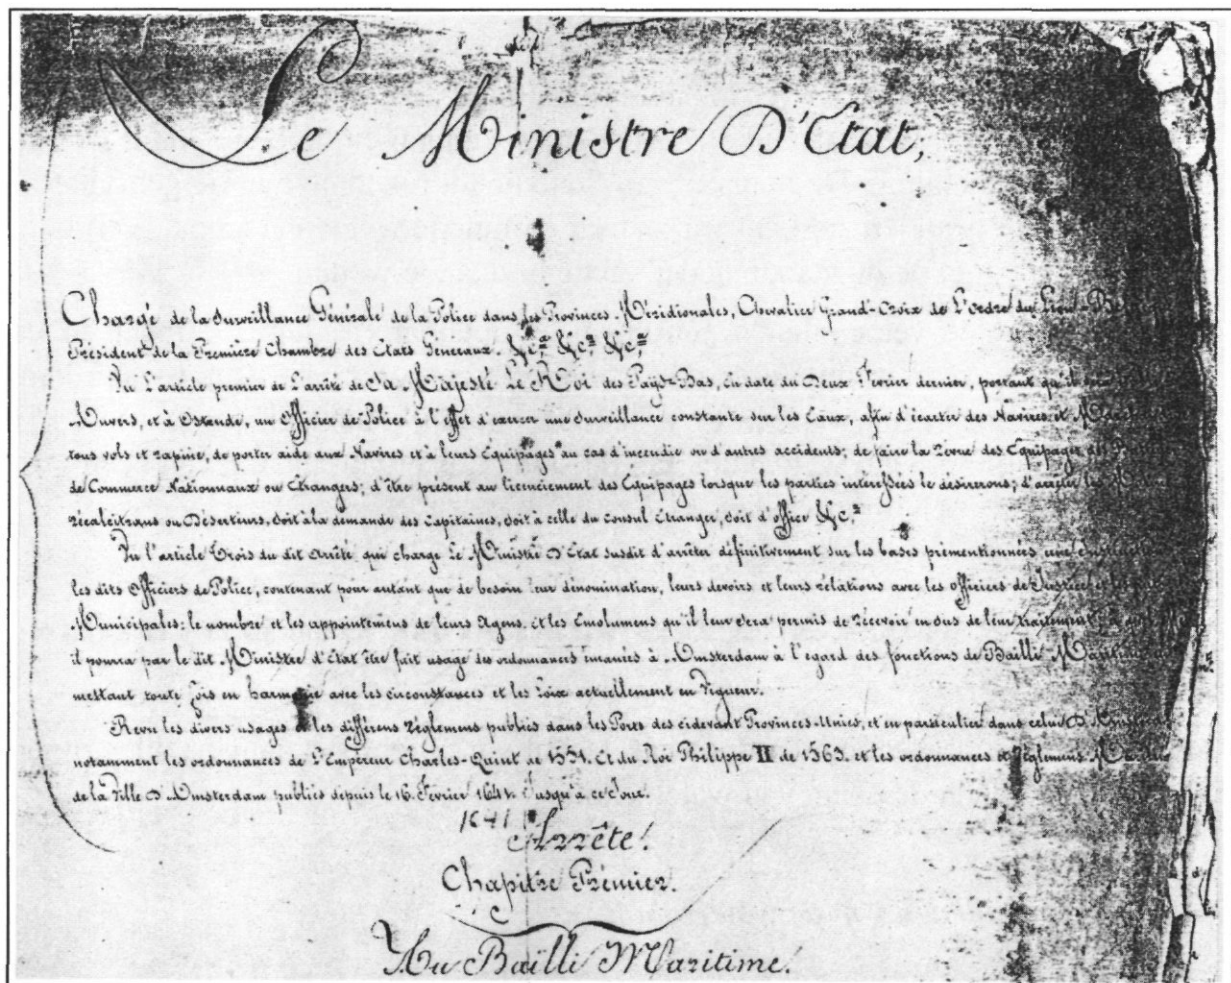 Le Ministre D'Etat,
Chargé de la Surveillance Générale de la Police dans les Provinces Méridionales, Chevalier Grand-Croix de L'ordre du Lion
Président de la Première Chambre des Etats Generaux. &c.ª &c.ª &c.ª
Vu L'article premier de L'arrêté de Sa Majesté Le Roi des Pays-Bas, en date du Deux Fevrier dernier, portant qu'il
Anvers, et à Ostende, un Officier de Police à l'effet d'exercer une Surveillance constante sur les Eaux, afin d'écarter des Navires et
tous vols et rapine, de porter aide aux Navires et à leurs Equipages au cas d'incendie ou d'autres accidents; de faire la revue des Equipages des
de Commerce Nationnaux ou Etrangers; d'être présent au licenciement des Equipages lorsque les parties intéressées le désirerons; d'arrêter les
récalcitrans ou Déserteurs, soit à la demande des Capitaines, soit à celle du Consul Etranger, soit d'office &c.ª
Vu l'article Trois du dit Arrêté qui charge Le Ministre D'Etat susdit d'arrêter définitivement sur les bases prémentionnées une
les dits Officiers de Police, contenant pour autant que de besoin leur dénomination, leurs devoirs et leurs rélations avec les Officiers de Justice et les
Municipales; le nombre et les appointemens de leurs Agens, et les Emolumens qu'il leur sera permis de récevoir en sus de leur traitement,
il pourra par le dit Ministre d'Etat être fait usage des ordonnances émanées à Amsterdam à l'egard des fonctions de Bailli Maritime
mettant toute fois en harmonie avec les circonstances et les Loix actuellement en Vigueur.
Revu les divers usages et les différens règlemens publiés dans les Ports des cidevant Provinces-Unies, et en particulier dans celui D'Amsterdam
notamment les ordonnances de L'Empereur Charles-Quint de 1551. Et du Roi Philippe II de 1563. et les ordonnances et Règlemens
de la Ville D'Amsterdam publiés dépuis le 16. Février 1641. Jusqu'à ce Jour.
1641
Arrête!
Chapitre Prémier.
Au Bailli Maritime.